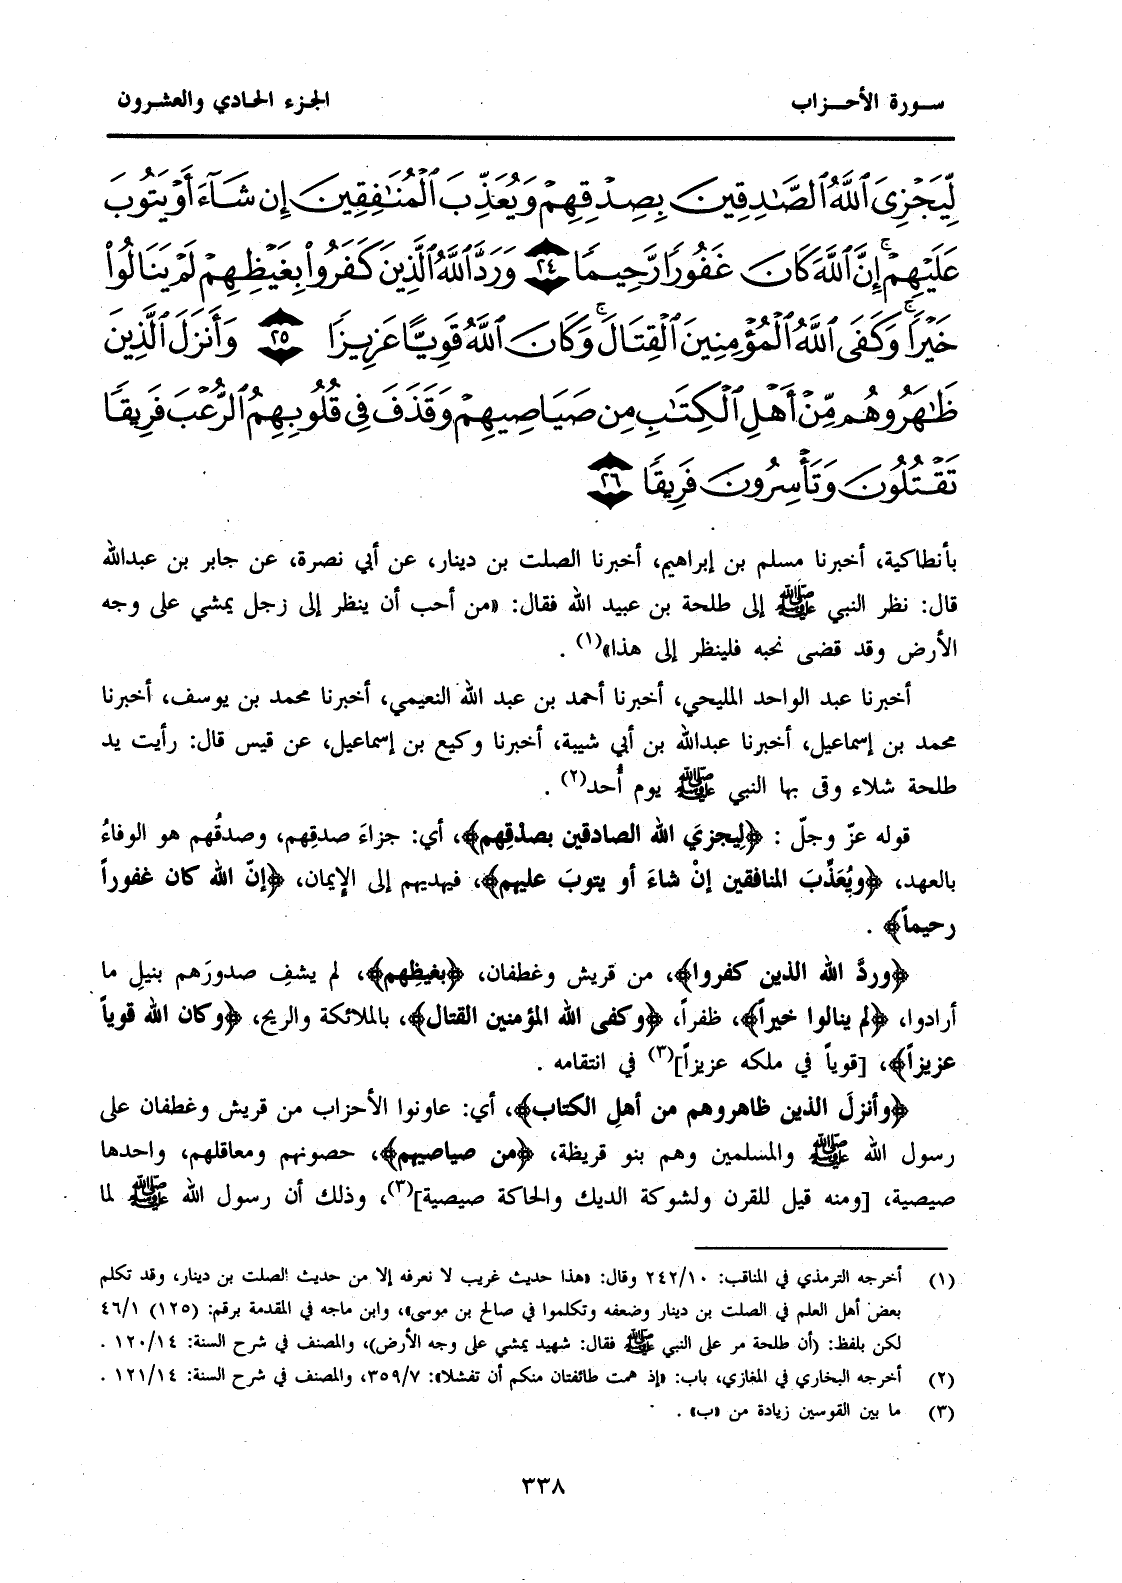 سورة الأحزاب
الجزء الحادي والعشرون
لِّيَجْزِىَ ٱللَّهُ ٱلصَّـٰدِقِينَ بِصِدْقِهِمْ وَيُعَذِّبَ ٱلْمُنَـٰفِقِينَ إِن شَآءَ أَوْ يَتُوبَ
عَلَيْهِمْ ۚ إِنَّ ٱللَّهَ كَانَ غَفُورًا رَّحِيمًا ٢٤ وَرَدَّ ٱللَّهُ ٱلَّذِينَ كَفَرُوا۟ بِغَيْظِهِمْ لَمْ يَنَالُوا۟
خَيْرًا ۚ وَكَفَى ٱللَّهُ ٱلْمُؤْمِنِينَ ٱلْقِتَالَ ۚ وَكَانَ ٱللَّهُ قَوِيًّا عَزِيزًا ٢٥ وَأَنزَلَ ٱلَّذِينَ
ظَـٰهَرُوهُم مِّنْ أَهْلِ ٱلْكِتَـٰبِ مِن صَيَاصِيهِمْ وَقَذَفَ فِى قُلُوبِهِمُ ٱلرُّعْبَ فَرِيقًا
تَقْتُلُونَ وَتَأْسِرُونَ فَرِيقًا ٢٦
بأنطاكية، أخبرنا مسلم بن إبراهيم، أخبرنا الصلت بن دينار، عن أبي نصرة، عن جابر بن عبدالله
قال: نظر النبي ﷺ إلى طلحة بن عبيد الله فقال: «من أحب أن ينظر إلى زجل يمشي على وجه
الأرض وقد قضى نحبه فلينظر إلى هذا»(١) .
أخبرنا عبد الواحد المليحي، أخبرنا أحمد بن عبد الله النعيمي، أخبرنا محمد بن يوسف، أخبرنا
محمد بن إسماعيل، أخبرنا عبدالله بن أبي شيبة، أخبرنا وكيع بن إسماعيل، عن قيس قال: رأيت يد
طلحة شلاء وقى بها النبي ﷺ يوم أُحد(٢) .
قوله عزّ وجلّ : ﴿لِيجزيَ الله الصادقين بصدْقِهم﴾، أي: جزاءَ صدقِهم، وصدقُهم هو الوفاءُ
بالعهد، ﴿ويُعَذِّبَ المنافقين إنْ شاءَ أو يتوبَ عليهم﴾، فيهديهم إلى الإيمان، ﴿إنّ الله كان غفوراً
رحيماً﴾ .
﴿وردَّ الله الذين كفروا﴾، من قريش وغطفان، ﴿بغيظِهم﴾، لم يشفِ صدورَهم بنيلِ ما
أرادوا، ﴿لم ينالوا خيراً﴾، ظفراً، ﴿وكفى الله المؤمنين القتال﴾، بالملائكة والريح، ﴿وكان الله قوياً
عزيزاً﴾، [قوياً في ملكه عزيزاً](٣) في انتقامه .
﴿وأنزلَ الذين ظاهروهم من أهلِ الكتاب﴾، أي: عاونوا الأحزاب من قريش وغطفان على
رسول الله ﷺ والمسلمين وهم بنو قريظة، ﴿من صياصيهم﴾، حصونهم ومعاقلهم، واحدها
صيصية، [ومنه قيل للقرن ولشوكة الديك والحاكة صيصية](٣)، وذلك أن رسول الله ﷺ لما
(١) أخرجه الترمذي في المناقب: ٢٤٢/١٠ وقال: «هذا حديث غريب لا نعرفه إلا من حديث الصلت بن دينار، وقد تكلم
بعض أهل العلم في الصلت بن دينار وضعفه وتكلموا في صالح بن موسى»، وابن ماجه في المقدمة برقم: (١٢٥) ٤٦/١
لكن بلفظ: (أن طلحة مر على النبي ﷺ فقال: شهيد يمشي على وجه الأرض)، والمصنف في شرح السنة: ١٢٠/١٤ .
(٢) أخرجه البخاري في المغازي، باب: «إذ همت طائفتان منكم أن تفشلا»: ٣٥٩/٧، والمصنف في شرح السنة: ١٢١/١٤ .
(٣) ما بين القوسين زيادة من «ب» .
٣٣٨